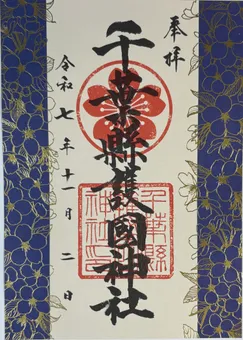 奉拝
千葉縣護國神社
令和七年十一月二日
千葉縣
護國
神社印